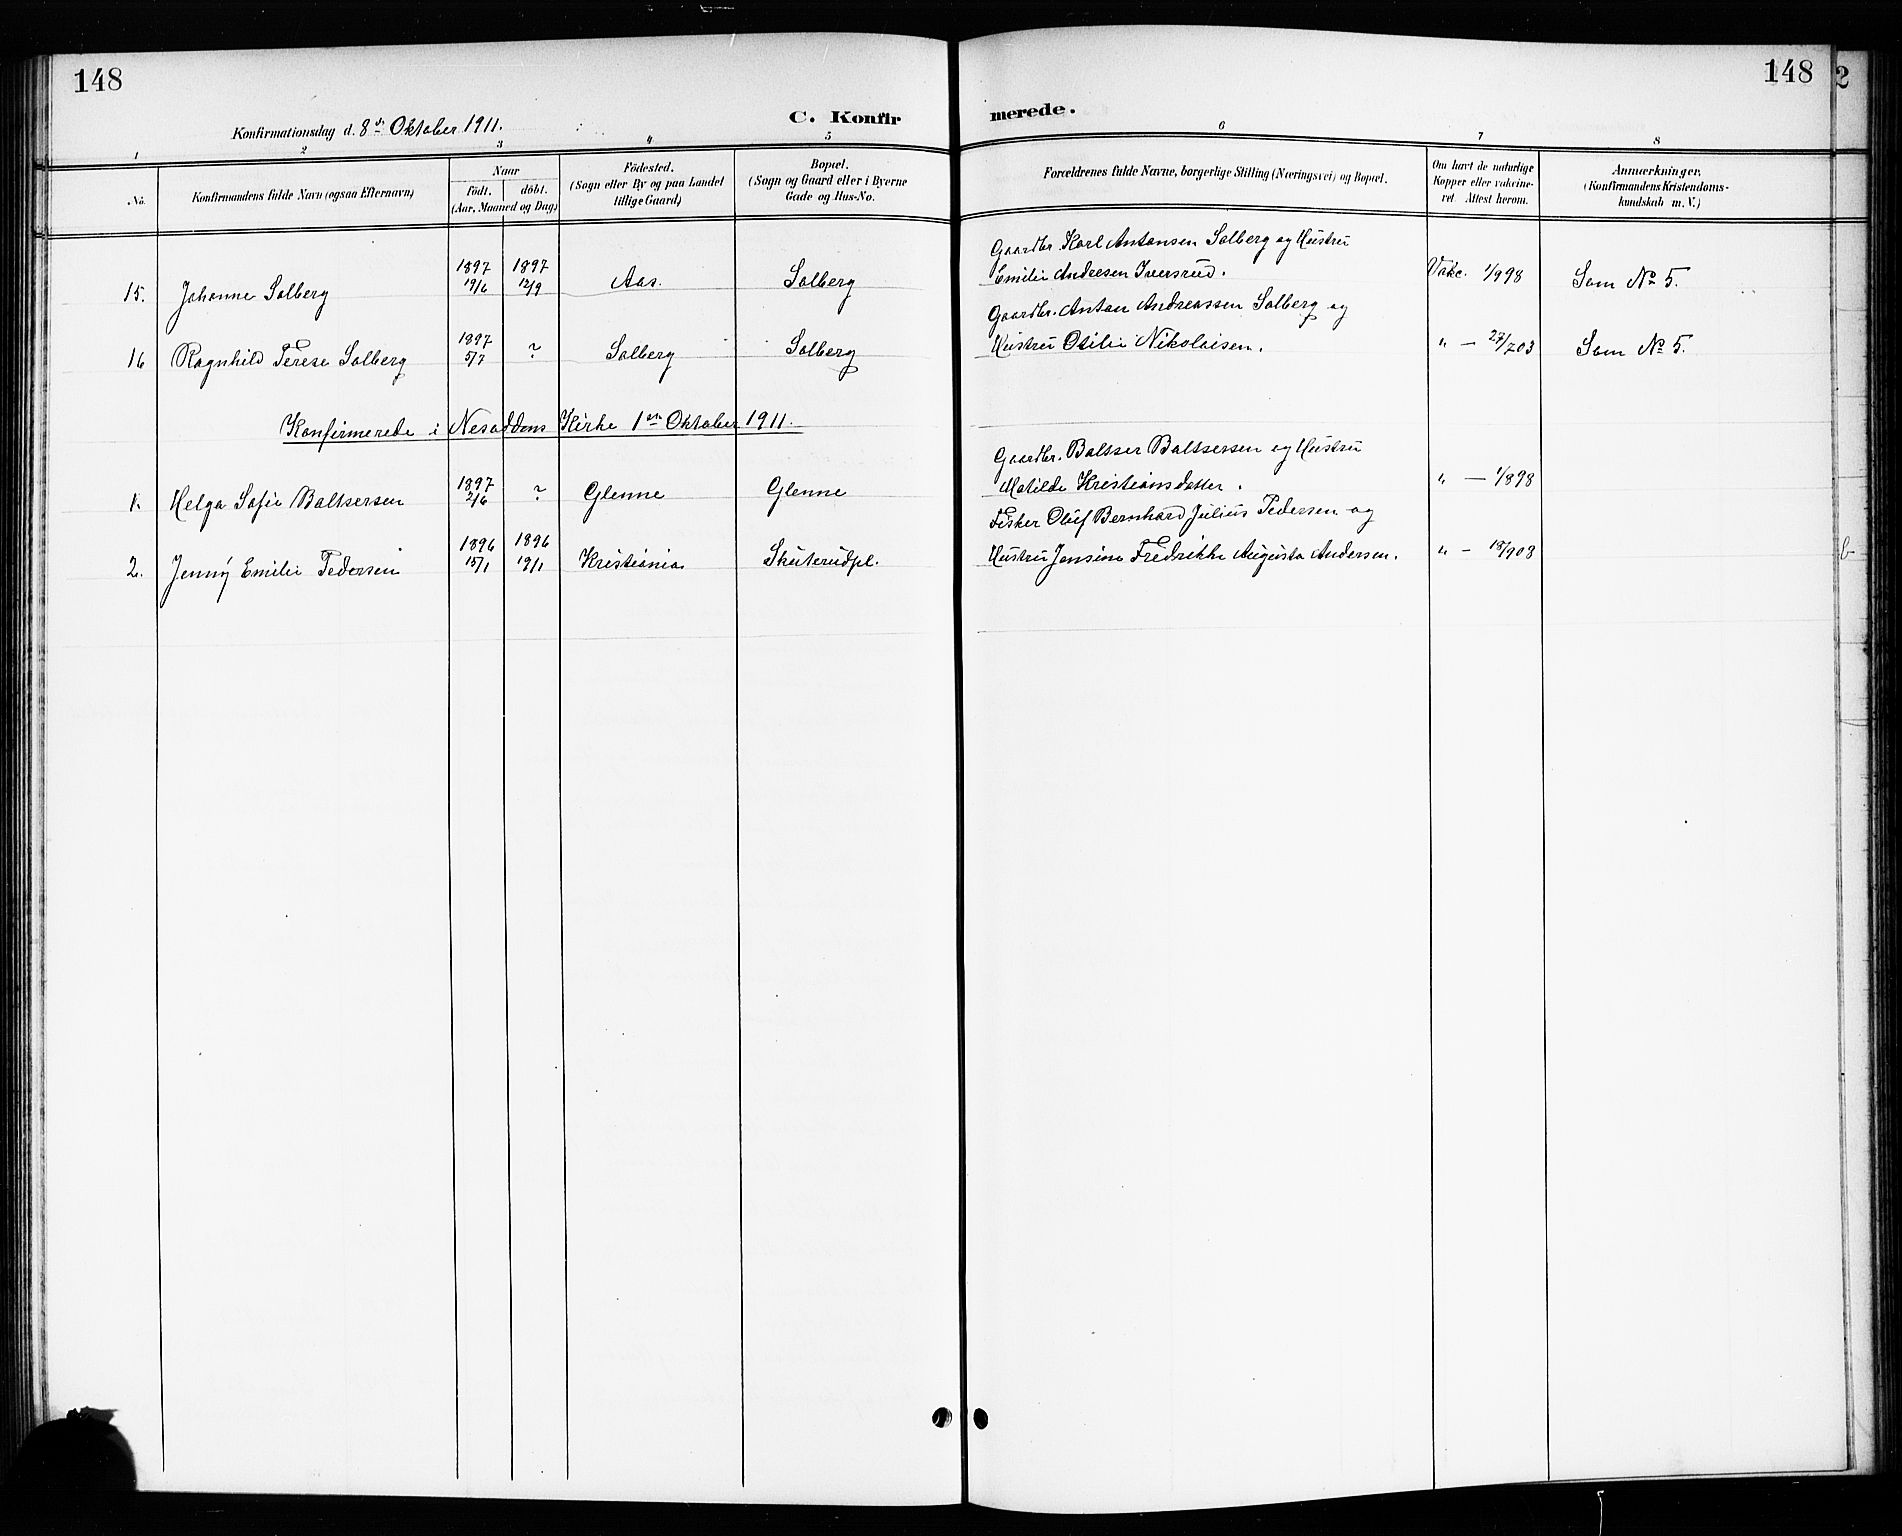 148
148
2
Konfirmationsdag d. 8de Oktober 1911.
C. Konfir
merede.
1 2 3 4 5 6 7 8
No.
Konfirmandens fulde Navn (ogsaa Efternavn)
Naar
født. døbt.
(Aar, Maaned og Dag)
Fødested.
(Sogn eller By og paa Landet
tillige Gaard)
Bopæl.
(Sogn og Gaard eller i Byerne
Gade og Hus-No.
Forældrenes fulde Navne, borgerlige Stilling (Næringsvei) og Bopæl.
Om havt de naturlige
Kopper eller vakcine-
ret. Attest herom.
Anmærkninger,
(Konfirmandens Kristendoms-
kundskab m. V.)
Gaardbr. Karl Antonsen Solberg og Hustru
1897 1897
15. Johanne Solberg 19/6 12/9 Aas. Solberg Emilie Andresen Iversrud. Vakc. 1/9 98 Som No 5.
Gaardbr. Anton Andreassen Solberg og
1897
16 Ragnhild Terese Solberg 5/7 ? Solberg Solberg Hustru Otilie Nikolaisen. " — 23/2 03 Som No 5.
Konfirmerede i Nesoddens Kirke 1ste Oktober 1911.
Gaardbr. Baltser Baltsersen og Hustru
1897
1. Helga Sofie Baltsersen 2/6 ? Glenne Glenne Matilde Kristiansdatter. " — 1/8 98
Fisker Oluf Bernhard Julius Pedersen og
1896 1896
2. Jenny Emilie Pedersen 15/1 19/1 Kristiania Skuterudpl. Hustru Jensine Fredrikke Augusta Andersen. " — 18/9 08